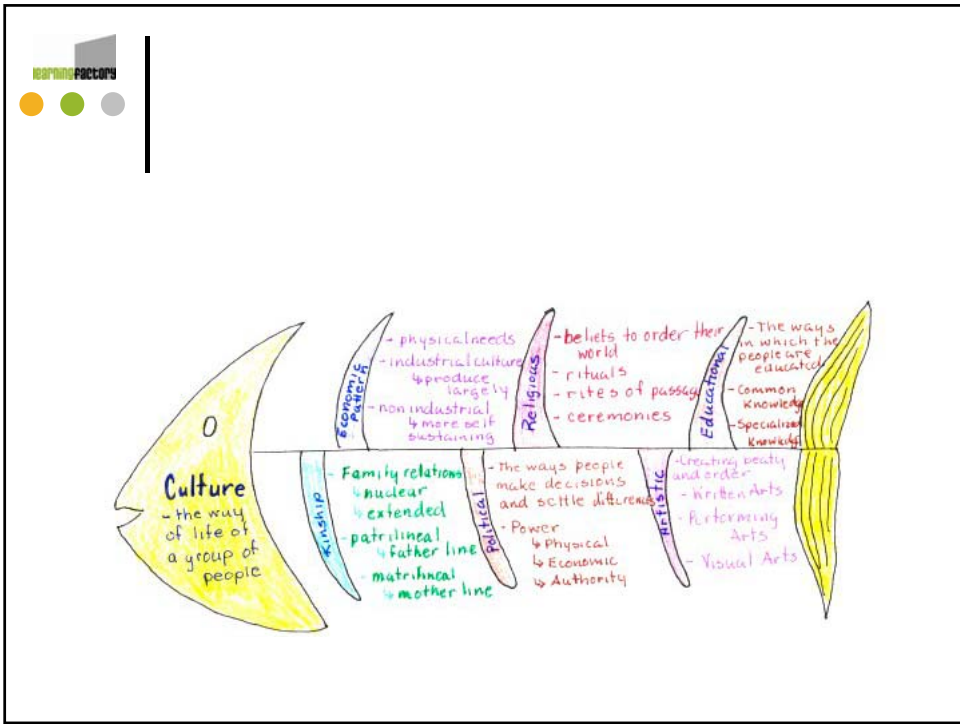 learningfactory
Culture
- the way
of life of
a group of
people
Economic
Pattern
- physical needs
- industrial culture
↳ produce
largely
- non industrial
↳ more self
sustaining
Religious
- beliefs to order their
world
- rituals
- rites of passag
- ceremonies
Educational
- The ways
in which the
people are
educated
- Common
Knowledg
- Specialized
Knowledg
Kinship
- Family relations
↳ nuclear
↳ extended
- patrilineal
↳ father line
- matrilineal
↳ mother line
Political
- The ways people
make decisions
and settle differences
- Power
↳ Physical
↳ Economic
↳ Authority
Artistic
- Creating beaty
and order
- Written Arts
- Performing
Arts
- Visual Arts